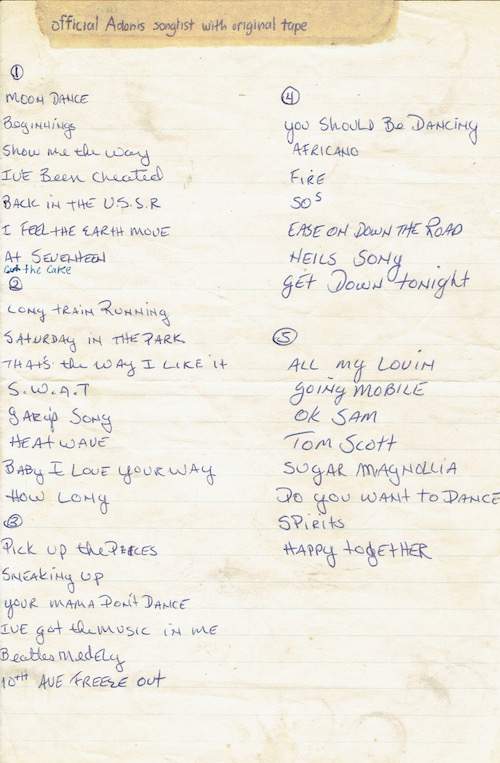 official Adonis songlist with original tape
1
MOON DANCE
Beginnings
Show me the way
I'VE Been cheated
BACK IN THE U.S.S.R
I FEEL THE EARTH MOVE
AT SEVENTEEN
Cut the cake
2
LONG TRAIN RUNNING
SATURDAY IN THE PARK
THAT'S the WAY I LIKE it
S.W.A.T
GARY'S SONG
HEAT WAVE
BABY I LOVE YOUR WAY
HOW LONG
3
PICK UP the PEICES
SNEAKING UP
YOUR MAMA DON'T DANCE
IVE got the MUSIC in ME
Beatles MedEly
10TH AVE FREEZE OUT
4
YOU SHOULD Be DANCING
AFRICANO
FIRE
50S
EASE ON DOWN THE ROAD
NEILS SONG
GET DOWN tonight
5
ALL my LOVIN
going MOBILE
OK SAM
TOM SCOTT
SUGAR MAGNOLLIA
DO YOU WANT to DANCE
SPIRITS
HAPPY togETHER